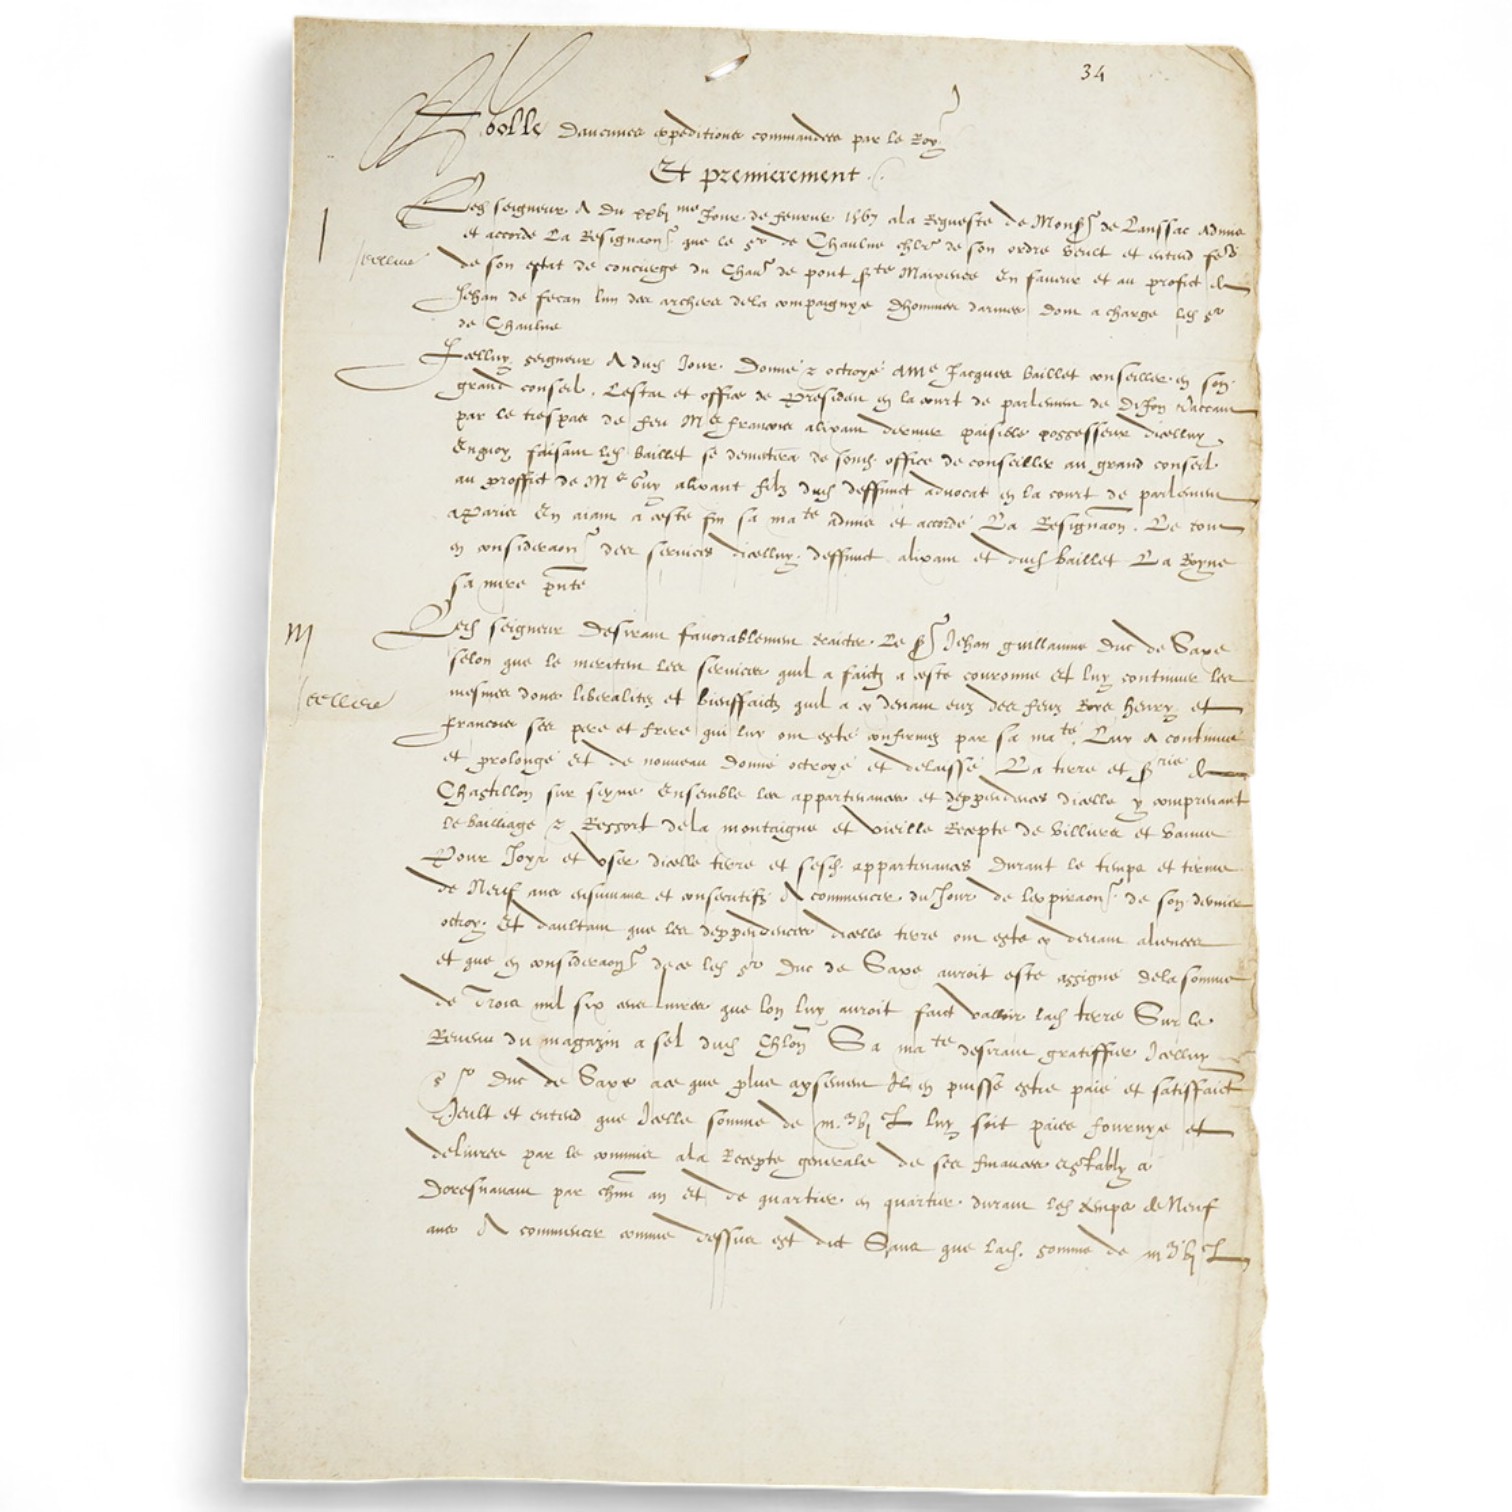 34
Roolle daucunes expeditions commandees par le Roy
Et premierement
Led seigneur A du xxvj me Jour de feurier 1567 ala Requeste de Mons r de Lanssac admis
et accordé La Resignaon que le s r de Chaulne chlr de son ordre veult et entend fe
de son estat de concierge du Chau de pont s te Maixence En faueur et au profict de
Jehan de fecan lun des archers dela compaignye dhommes darmes dont a charge led s r
de Chaulne
Icelluy seigneur A dud Jour donné & octroyé A M e Jacques baillet conseiller en son
grand conseil, Lestat et office de President en la court de parlement de Dijon vaccant
par le trespas de feu M e francois alixant dernier paisible possesseur dicelluy
Enquoy faisant led baillet se demettra de sond office de conseiller au grand conseil
au proffict de M e Guy alixant filz dud deffunct aduocat en la court de parlement
a Paris En aiant a ceste fin sa ma te admis et accordé La Resignaon. Le tout
en consideraon des seruices dicelluy deffunct alixant et dud baillet La Royne
sa mere pnte
M
Led seigneur desirant fauorablement traicter Le s r Jehan guillaume duc de Saxe
selon que le meritent les seruices quil a faictz a ceste couronne Et luy continuer les
mesmes dons liberalitez et bienffaictz quil a cy deuant euz des feuz Roys henry et
francois ses pere et frere qui luy ont esté confirmez par sa ma te, Luy A continué
et prolongé Et de nouueau donné octroyé et delaissé La terre et s rie de
Chastillon sur seyne Ensemble les appartenances et deppendences dicelle y comprenant
le bailliage & Ressort dela montaigne et vieille Recepte de Villiers et Vanne
Pour Joyr et vser dicelle terre et sesd appartenances durant le temps et terme
de Neuf ans ensuiuans et consecutifz A commencer du Jour de lexpiraon de son dernier
octroy Et daultant que les deppendences dicelle terre ont esté cy deuant alienees
et que en consideraon dece led s r Duc de Saxe auroit esté assigné dela somme
de Trois mil six cens liures que lon luy auroit faict valloir lad terre Sur le
Reuenu du magazin a sel dud Chlon Sa ma te desirant gratiffier Icelluy
s r Duc de Saxe ace que plus aysement Il en puisse estre paié et satisfaict
Veult et entend que Icelle somme de m. iij vj c L luy soit paiee fournye et
deliuree par le commis ala Recepte generalle de ses finances establye a
Doresnauant par chun an Et de quartier en quartier durant led temps de Neuf
ans A commencer comme dessus est dict Sans que lad. somme de iij m vj c L